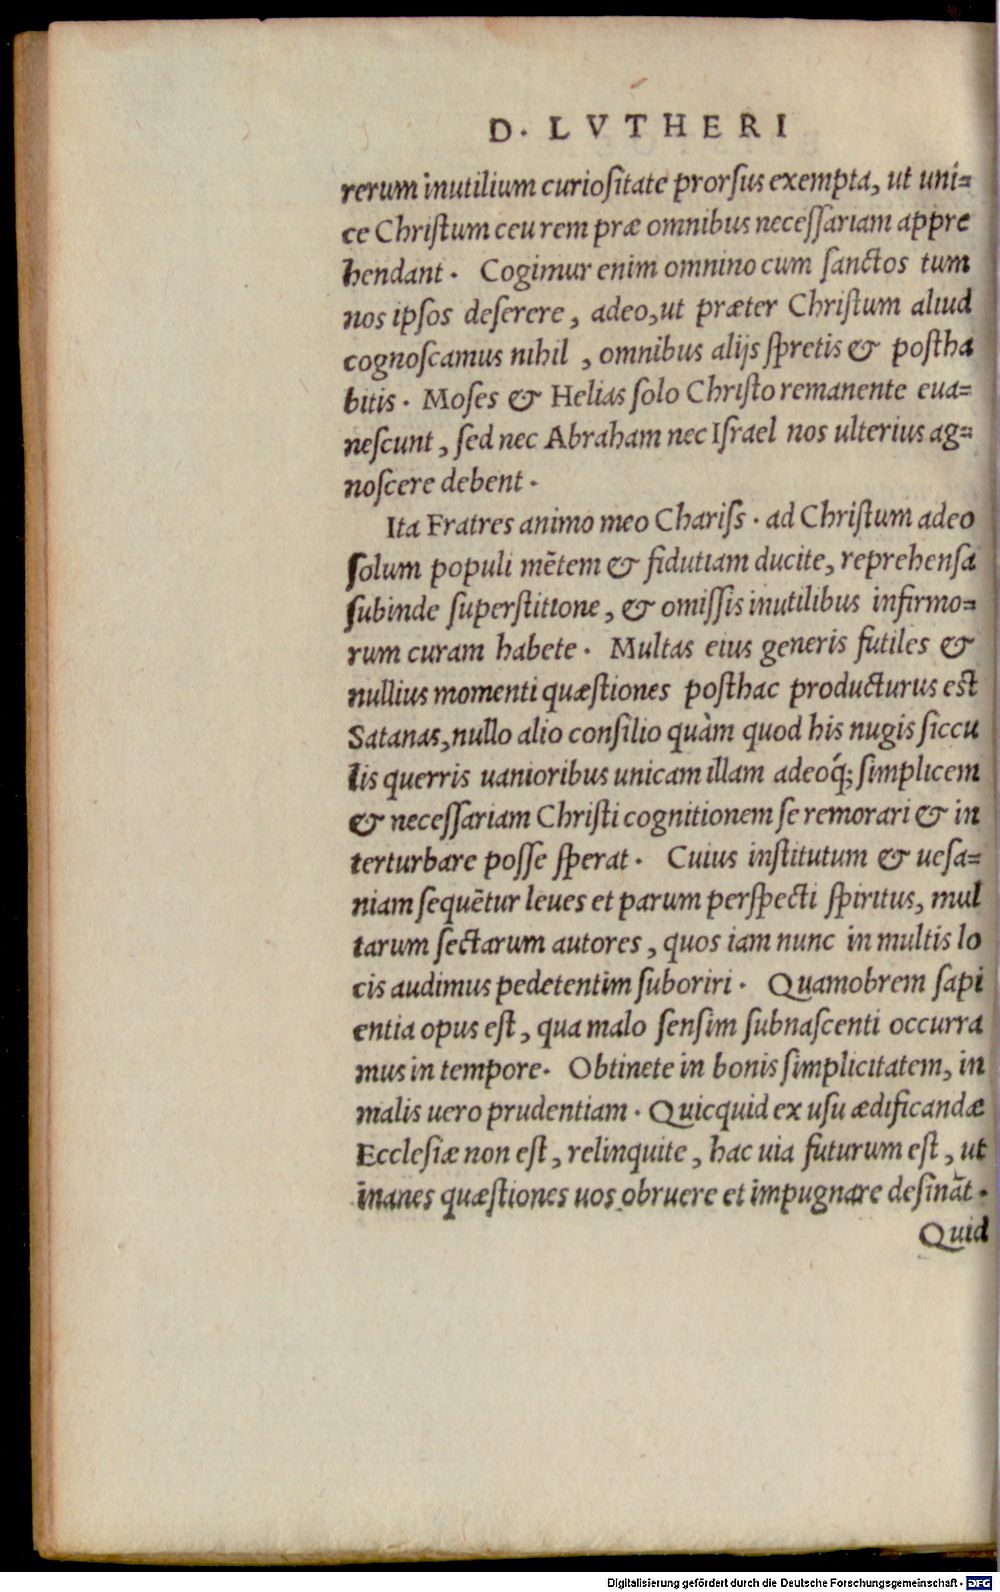 D. LVTHERI
rerum inutilium curioſitate prorſus exempta, ut uni⸗
ce Chriſtum ceu rem præ omnibus neceſſariam appre
hendant. Cogimur enim omnino cum ſanctos tum
nos ipſos deſerere, adeo, ut præter Chriſtum aliud
cognoſcamus nihil, omnibus alijs ſpretis & poſtha
bitis. Moſes & Helias ſolo Chriſto remanente eua⸗
neſcunt, ſed nec Abraham nec Iſrael nos ulterius ag⸗
noſcere debent.
Ita Fratres animo meo Chariſs. ad Chriſtum adeo
ſolum populi mētem & fidutiam ducite, reprehenſa
ſubinde ſuperſtitione, & omiſſis inutilibus infirmo⸗
rum curam habete. Multas eius generis futiles &
nullius momenti quæſtiones poſthac producturus est
Satanas, nullo alio conſilio quàm quod his nugis ſiccu
lis querris uanioribus unicam illam adeoq́; ſimplicem
& neceſſariam Chriſti cognitionem ſe remorari & in
terturbare poſſe ſperat. Cuius inſtitutum & ueſa⸗
niam ſequētur leues et parum perſpecti ſpiritus, mul
tarum ſectarum autores, quos iam nunc in multis lo
cis audimus pedetentim ſuboriri. Quamobrem ſapi
entia opus eſt, qua malo ſenſim ſubnaſcenti occurra
mus in tempore. Obtinete in bonis ſimplicitatem, in
malis uero prudentiam. Quicquid ex uſu ædificandæ
Eccleſiæ non eſt, relinquite, hac uia futurum eſt, ut
inanes quæſtiones uos obruere et impugnare deſināt.
Quid
Digitalisierung gefördert durch die Deutsche Forschungsgemeinschaft - DFG